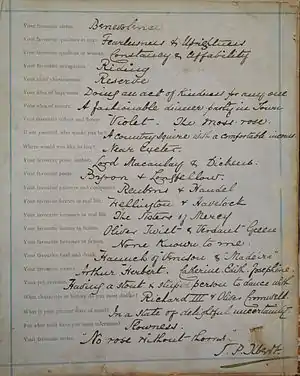 Your favourite virtue. Benevolence
Your favourite qualities in man. Fearlessness & Uprightness
Your favourite qualities in woman. Constancy & Affability
Your favourite occupation. Riding
Your chief characteristic. Reserve
Your idea of happiness. Doing an act of kindness for any one
Your idea of misery. A fashionable dinner party in Town
Your favourite colour and flower. Violet - The Moss rose.
If not yourself, who would you be? A Country Squire with a comfortable income
Where would you like to live? Near Exeter.
Your favourite prose authors. Lord Macaulay & Dickens.
Your favourite poets. Byron & Longfellow.
Your favourite painters and composers. Reubens & Handel
Your favourite heroes in real life. Wellington & Havelock
Your favourite heroines in real life. The Sisters of Mercy
Your favourite heroes in fiction. Oliver Twist & Verdant Green
Your favourite heroines in fiction. None Known to me.
Your favourite food and drink. Haunch of Venison & "Madeira"
Your favourite names. Arthur Herbert. Josephine.
Your pet aversion. Having a stout & person to dance with
What characters in history do you most dislike? Richard III & Oliver Cromwell
What is your present state of mind? In a state of delightful uncertainty
For what fault have you most toleration? Slowness.
Your favourite motto. "No rose without thorns"